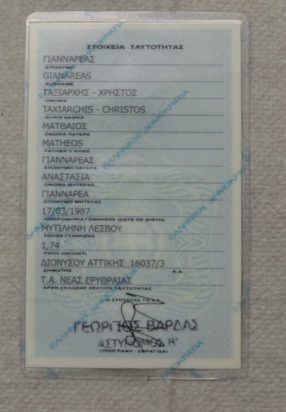 ΣΤΟΙΧΕΙΑ ΤΑΥΤΟΤΗΤΑΣ
ΓΙΑΝΝΑΡΕΑΣ
ΕΠΩΝΥΜΟ
GIANAREAS
SURNAME
ΤΑΞΙΑΡΧΗΣ - ΧΡΗΣΤΟΣ
ΟΝΟΜΑ
TAXIARCHIS - CHRISTOS
GIVEN NAMES
ΜΑΤΘΑΙΟΣ
ΟΝΟΜΑ ΠΑΤΕΡΑ
MATHEOS
FATHER'S NAME
ΓΙΑΝΝΑΡΕΑΣ
ΕΠΩΝΥΜΟ ΠΑΤΕΡΑ
ΑΝΑΣΤΑΣΙΑ
ΟΝΟΜΑ ΜΗΤΕΡΑΣ
ΓΙΑΝΝΑΡΕΑ
ΕΠΩΝΥΜΟ ΜΗΤΕΡΑΣ
17/03/1987
ΗΜΕΡΟΜΗΝΙΑ ΓΕΝΝΗΣΗΣ (DATE OF BIRTH)
ΜΥΤΙΛΗΝΗ ΛΕΣΒΟΥ
ΤΟΠΟΣ ΓΕΝΝΗΣΗΣ
1,74
ΥΨΟΣ (HEIGHT)
ΔΙΟΝΥΣΟΥ ΑΤΤΙΚΗΣ 16037/3
ΔΗΜΟΤΗΣ Α.Α.
Τ.Α. ΝΕΑΣ ΕΡΥΘΡΑΙΑΣ
ΑΡΧΗ ΕΚΔΟΣΗΣ ΔΕΛΤΙΟΥ ΤΑΥΤΟΤΗΤΑΣ
ΓΕΩΡΓΙΟΣ ΒΑΡΔΑΣ
ΑΣΤΥΝΟΜΟΣ Α'
(ΥΠΟΓΡΑΦΗ - ΣΦΡΑΓΙΔΑ)
ΕΛΛΗΝΙΚΗ ΔΗΜΟΚΡΑΤΙΑ